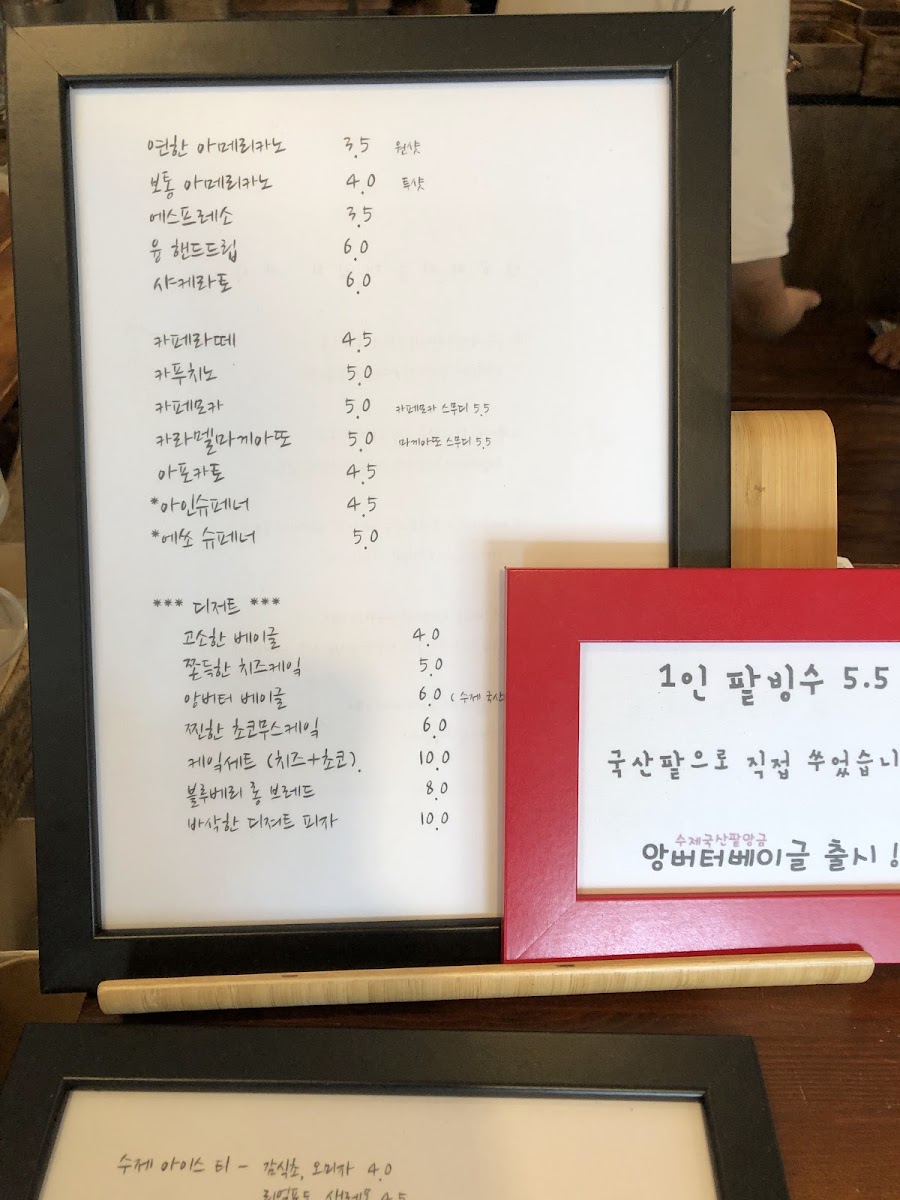 연한 아메리카노 3.5 원샷
보통 아메리카노 4.0 투샷
에스프레소 3.5
융 핸드드립 6.0
샤케라토 6.0
카페라떼 4.5
카푸치노 5.0
카페모카 5.0 카페모카 스무디 5.5
카라멜마끼아또 5.0 마끼아또 스무디 5.5
아포카토 4.5
*아인슈페너 4.5
*에쏘 슈페너 5.0
*** 디저트 ***
고소한 베이글 4.0
쫄득한 치즈케익 5.0
앙버터 베이글 6.0 ( 수제 국산
찐한 초코무스케익 6.0
케익세트 (치즈+초코). 10.0
블루베리 롱 브레드 8.0
바삭한 디져트 피자 10.0
1인 팥빙수 5.5
국산팥으로 직접 쑤었습니
수제국산팥앙금
앙버터베이글 출시 !
수제 아이스 티 - 감식초, 오미자 4.0
4.5